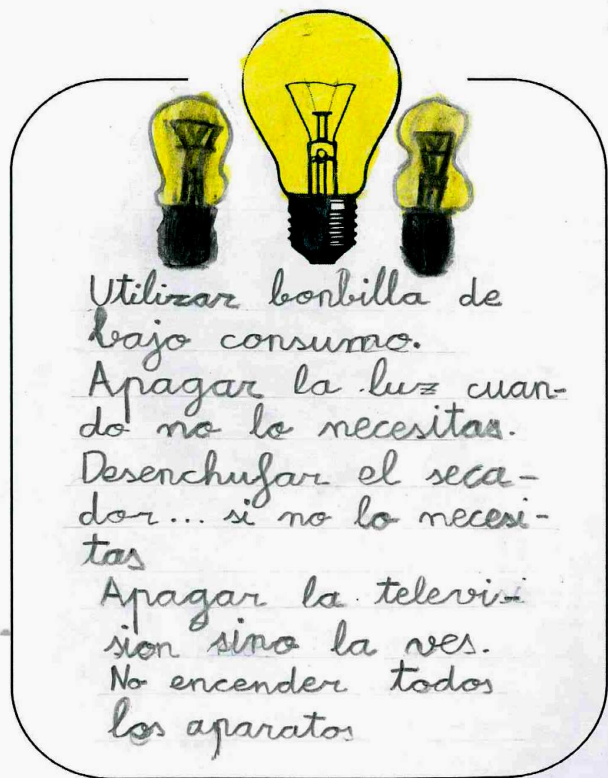 Utilizar bonbilla de
bajo consumo.
Apagar la luz cuan-
do no lo necesitas.
Desenchufar el seca-
dor... si no lo necesi-
tas
Apagar la televi-
sion sino la ves.
No encender todos
los aparatos